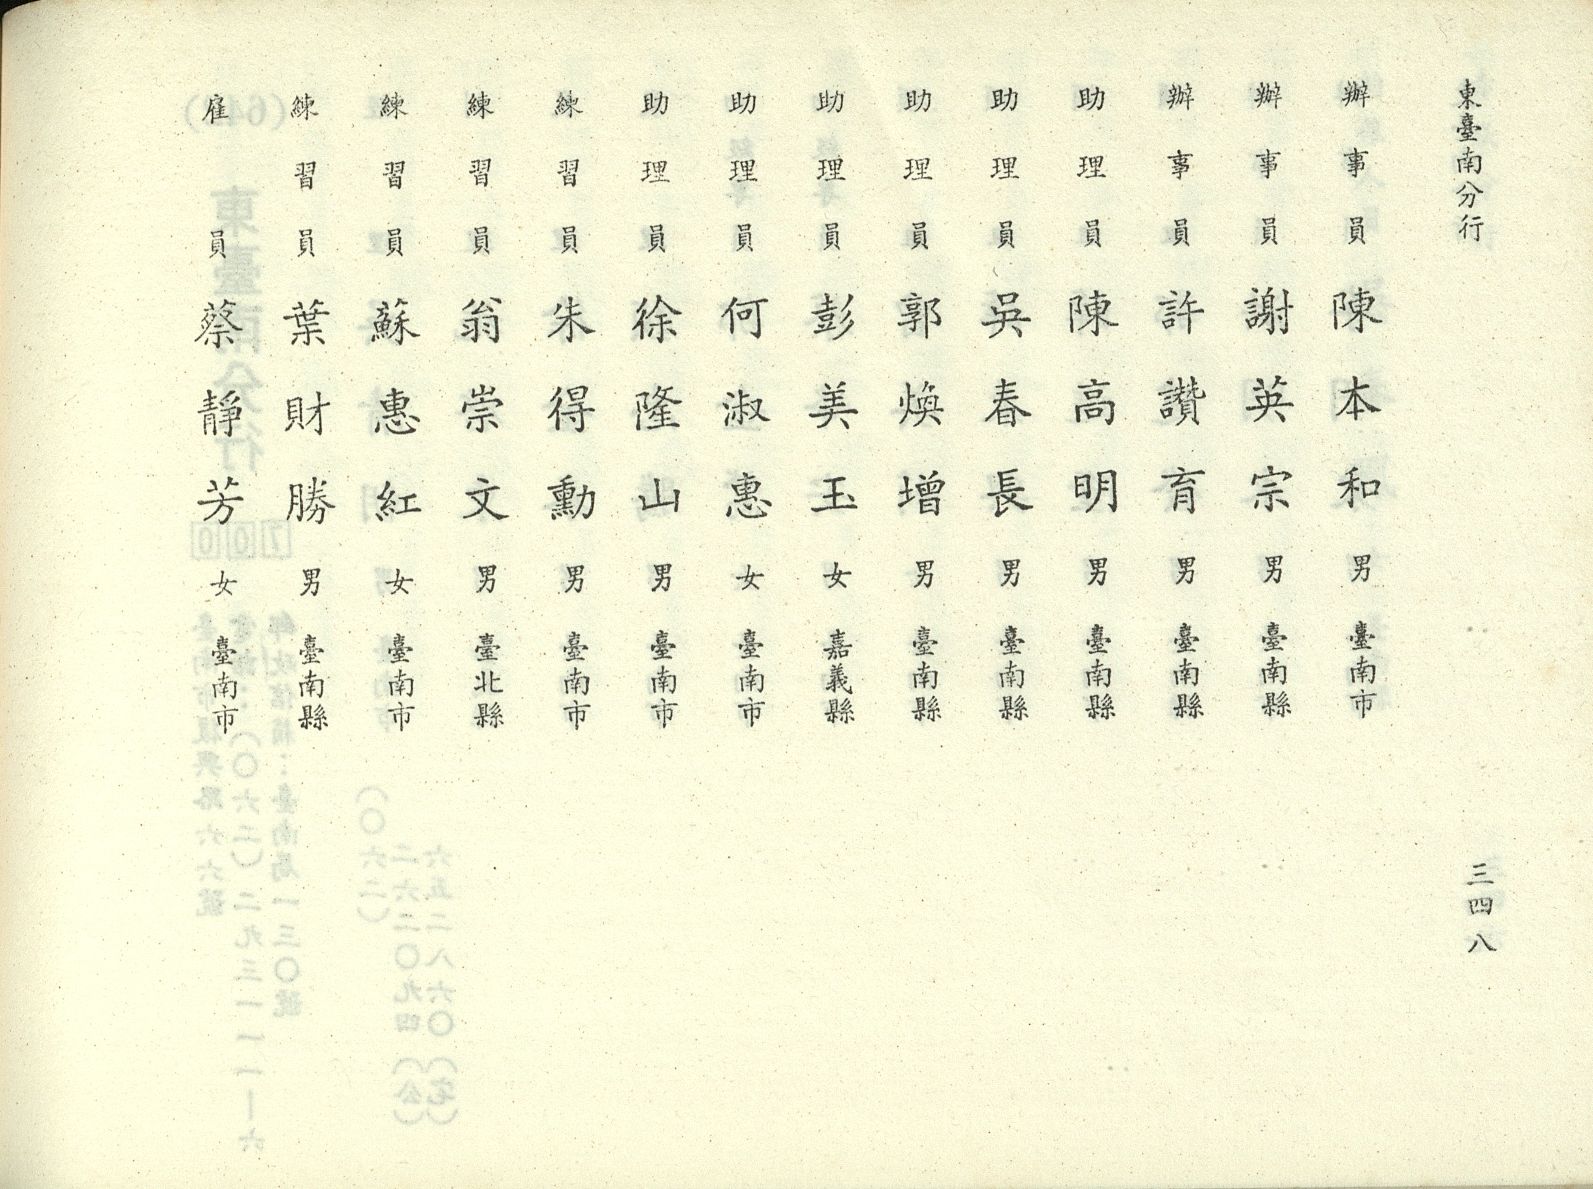 東臺南分行
三四八
辦事員 陳本和 男 臺南市
辦事員 謝英宗 男 臺南縣
辦事員 許讚育 男 臺南縣
助理員 陳高明 男 臺南縣
助理員 吳春長 男 臺南縣
助理員 郭煥增 男 臺南縣
助理員 彭美玉 女 嘉義縣
助理員 何淑惠 女 臺南市
助理員 徐隆山 男 臺南市
練習員 朱得勳 男 臺南市
練習員 翁崇文 男 臺北縣
練習員 蘇惠紅 女 臺南市
練習員 葉財勝 男 臺南縣
雇員 蔡靜芳 女 臺南市